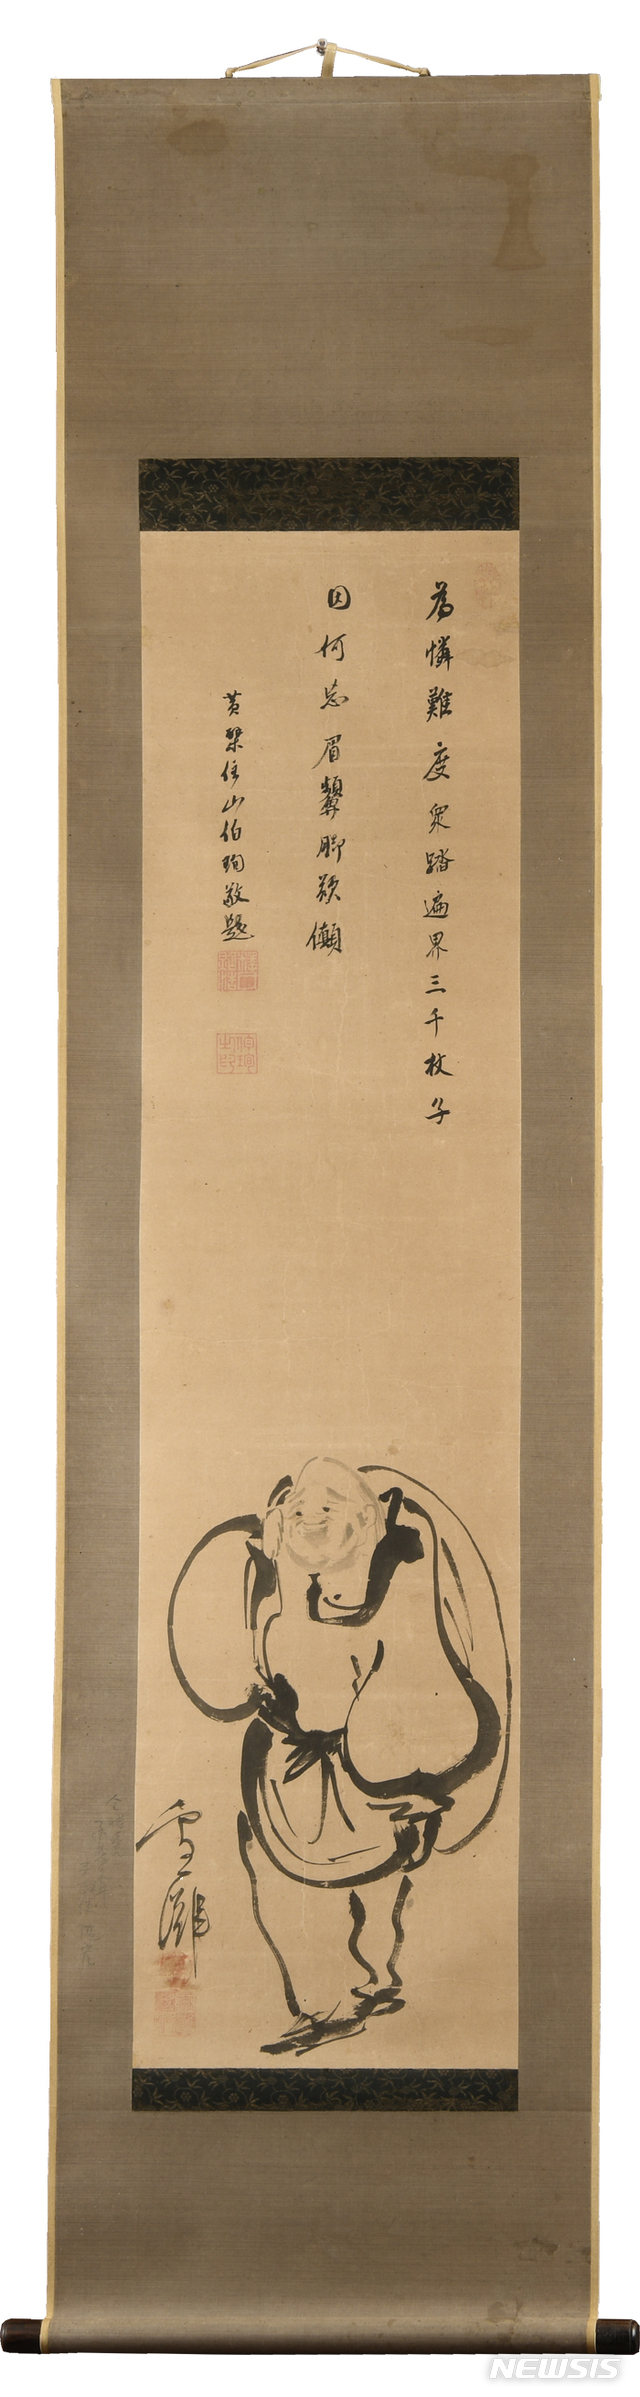 為憐難度衆踏遍界三千杖子
因何忘眉顰脚欲儱
黄檗住山伯珣敬題
雪灘
NEWSIS